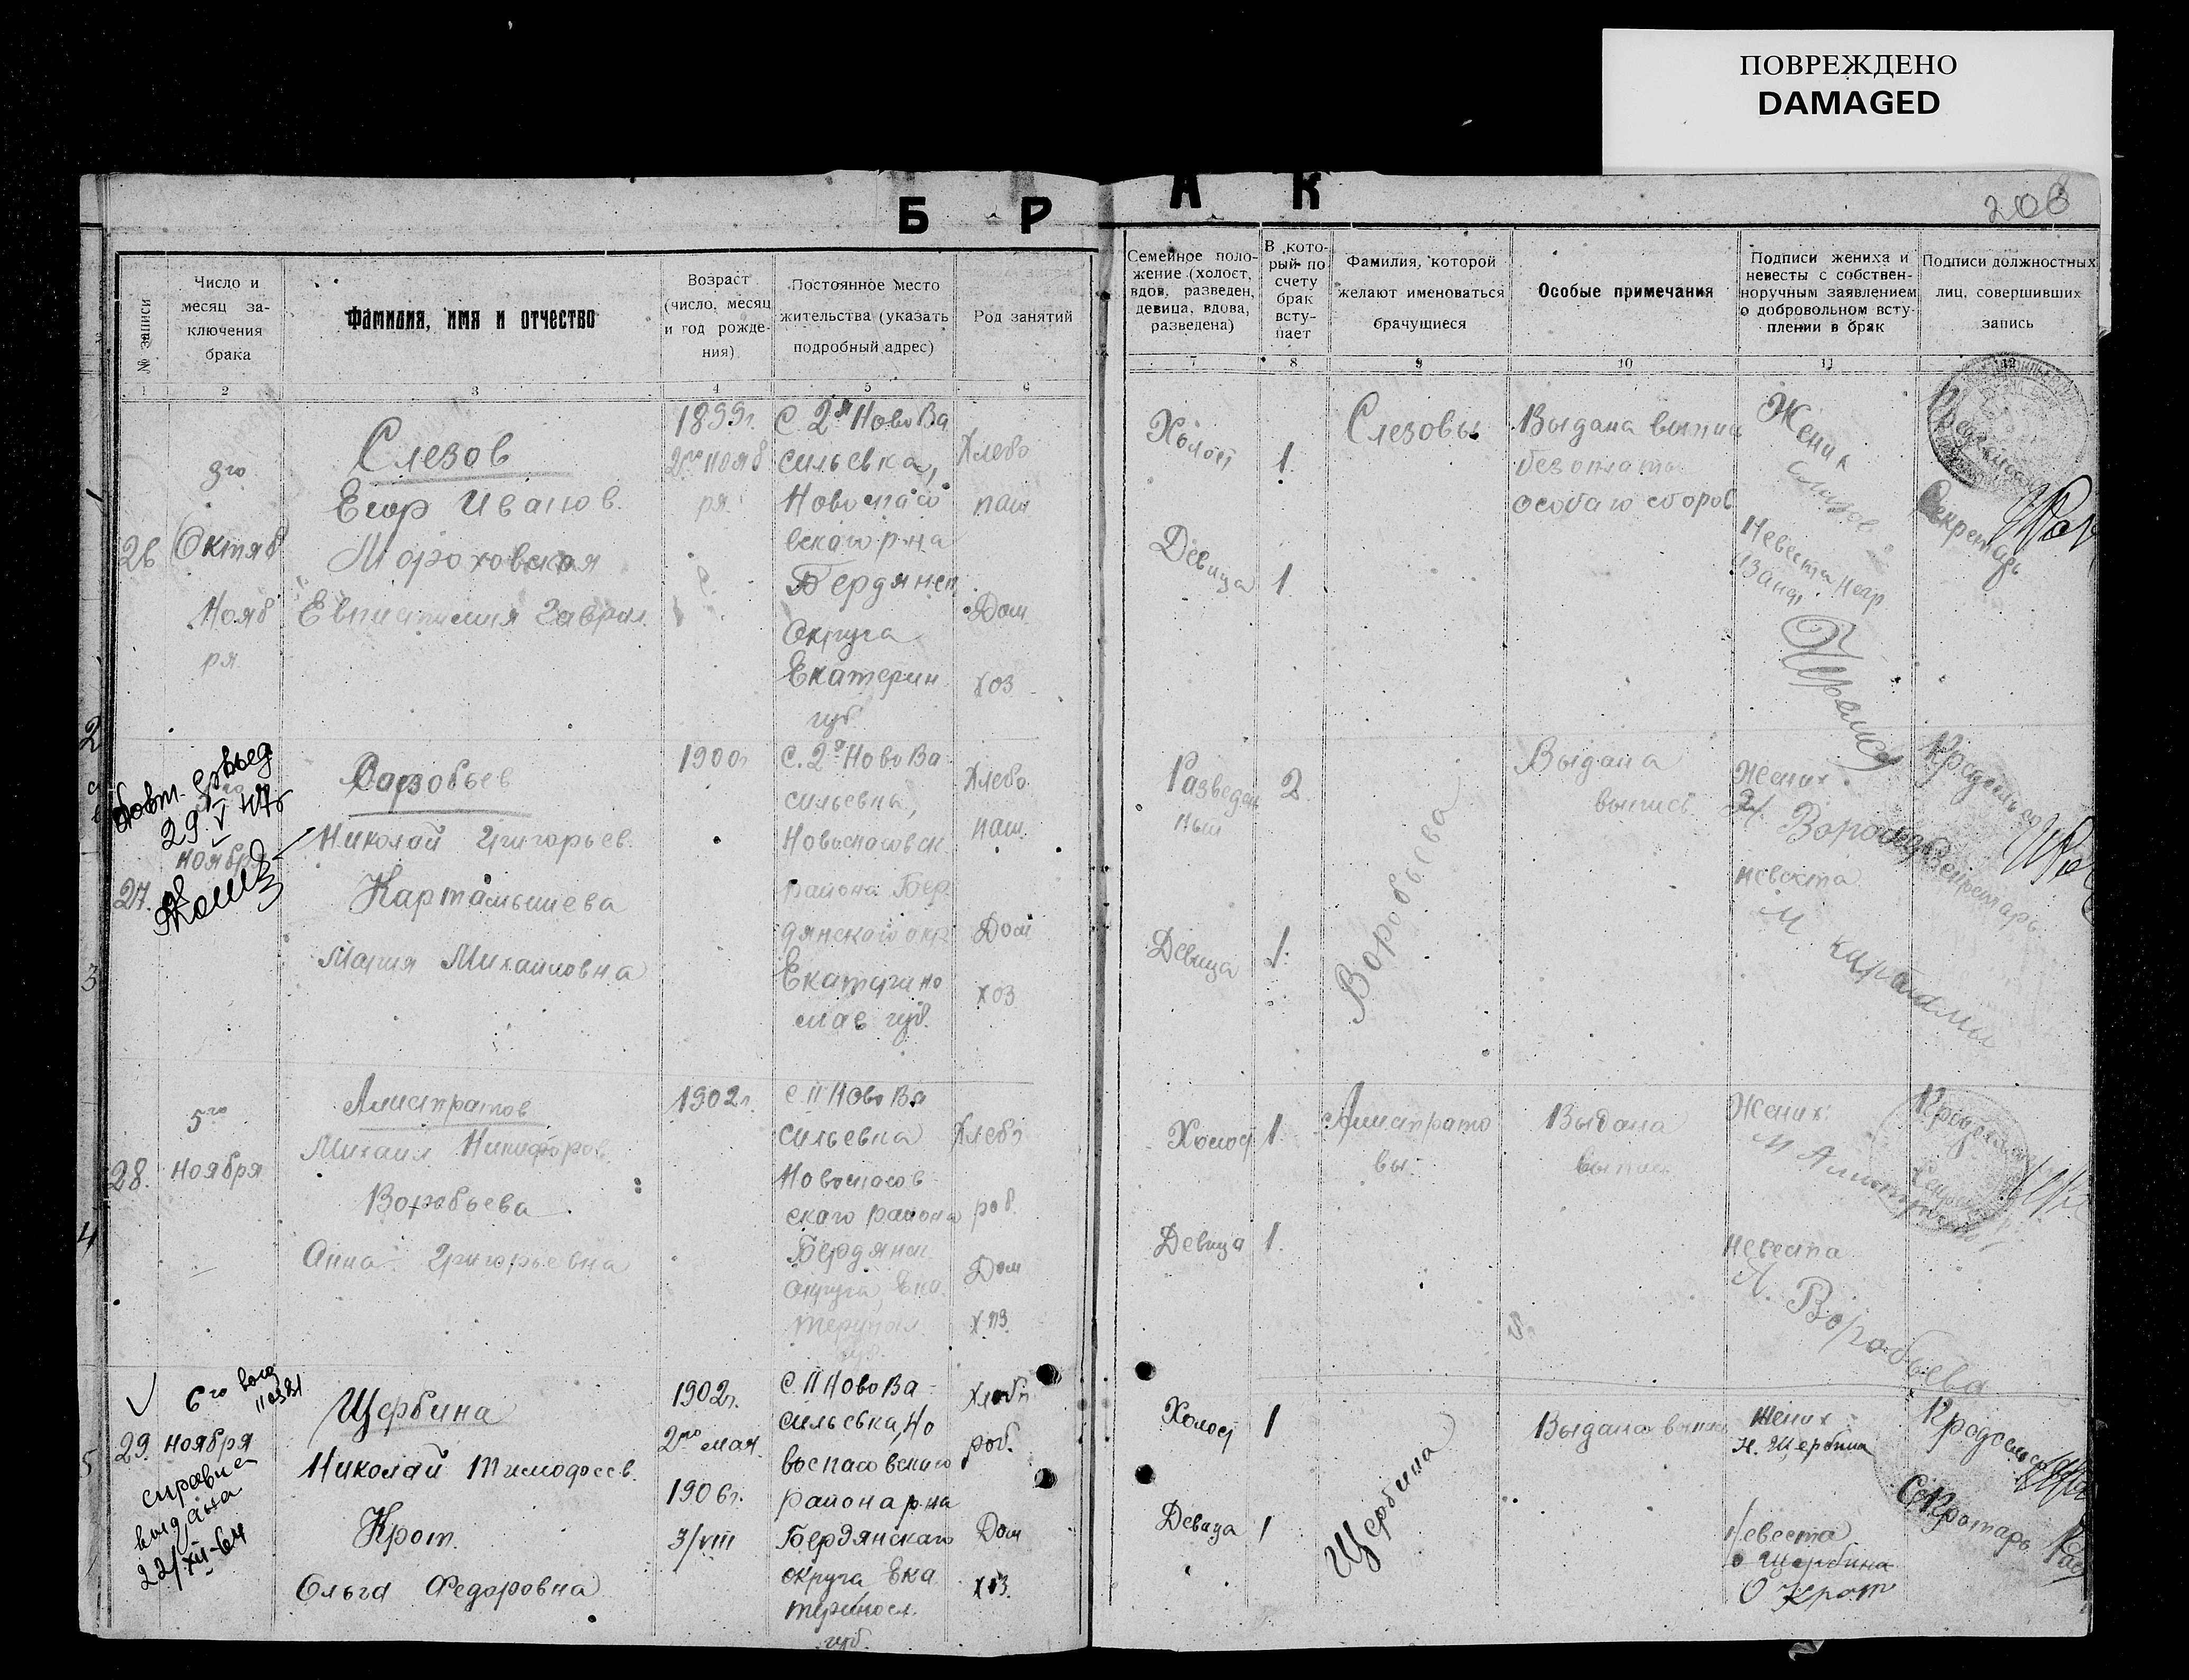 ПОВРЕЖДЕНО
DAMAGED
БРАК
208
№ записи
Число и
месяц за-
ключения
брака
Фамилия, имя и отчество
Возраст
(число, месяц
и год рожде-
ния)
Постоянное место
жительства (указать
подробный адрес)
Род занятий
Семейное поло-
жение (холост,
вдов, разведен,
девица, вдова,
разведена)
В кото-
рый по
счету
брак
всту-
пает
Фамилия, которой
желают именоваться
брачущиеся
Особые примечания
Подписи жениха и
невесты с собствен-
норучным заявлением
о добровольном всту-
плении в брак
Подписи должностных
лиц, совершивших
запись
1
2
3
4
5
6
7
8
9
10
11
12
26
3го
Октяб
Нояб
ря
Слезов
Егор Иванов.
Мороховская
Гаврил.
1899г.
2го нояб
ря
с. 2я НовоВа
сильевка,
Новоспасо
вского р-на
Бердянск
Округа
Екатерин
губ.
Хлебо
паш
Дом
хоз
Холост
Девица
1.
1
Слезовы
Выдана выпис
без оплаты
особаго сборов
Жених
Слизов
Невеста негр
Секретарь
27.
ноябр
29 V 47г
Воробьев
Николай Григорьев.
Картамышева
Мария Михайловна
1900г
с. 2я НовоВа
сильевка,
Новоспасовск
района Бер
дянского окр
Екатерино
слав губ.
Хлебо
паш.
Дом
хоз
Разведен
ный
Девица
2
1.
Воробьева
Выдана
выпись
Жених
невеста
М
Предсельсо
Секретарь
28.
5го
ноября
Алистратов
Михаил Никифоров.
Воробьева
Анна Григорьевна
1902г.
с. II НовоВа
сильевка
Новоспасов
скаго района
Бердянск
округа, Ека
теринсл.
губ.
Хлебо
роб.
Дом
хоз.
Холост
Девица
1.
1.
Алистрато
вы.
Выдана
выпись
Жених
М Алистратов
невеста
А. Воробьева
29.
6го
ноября
справка
выдана
22/XII-64
Щербина
Николай Тимофеев.
Крот.
Ольга Федоровна
1902г.
2го мая
1906г.
3/VIII
с. II НовоВа
сильевка, Но
воспасовского
района р-на
Бердянскаго
округа Ека
теринсл.
губ.
Хлебо
роб.
Дом
хоз.
Холост
Девица
1
1
Щербина
Выдана выпис
Жених
Н. Щербина
Невеста
о Щербина
О Крот
Предсельсо
Секретарь